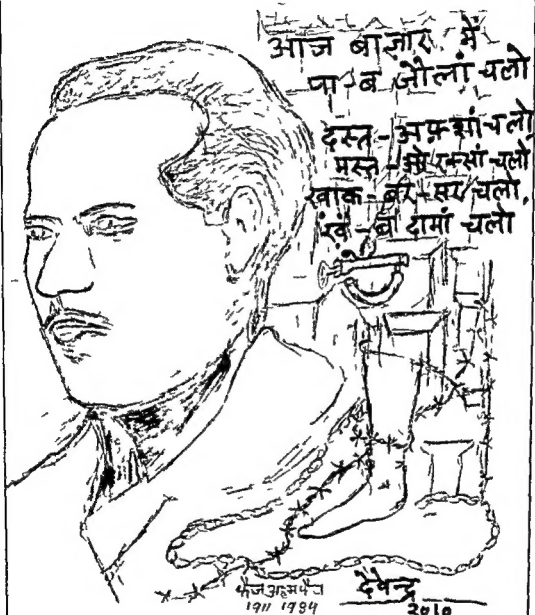 आज बाज़ार में
पा-ब जौलां चलो
दस्त-अफ़्शां चलो,
मस्त-ओ रक्सां चलो
खाक-बर-सर चलो,
खूं-ब दामां चलो
फैज अहमद फैज
1911 1984
देवेन्द्र
2010